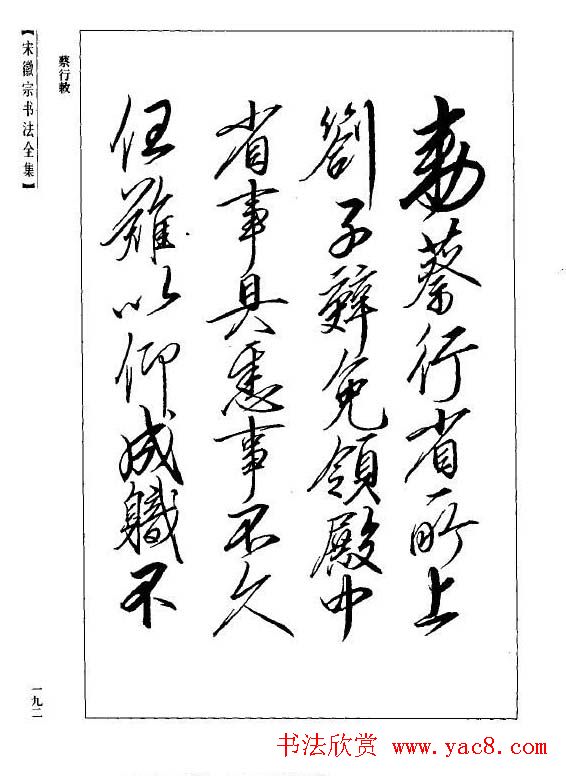 勅蔡行省所上
劄子辭免領殿中
省事具悉事不久
任難以仰成軄不
蔡行敕
【宋徽宗书法全集】
一九二
书法欣赏 www.yac8.com